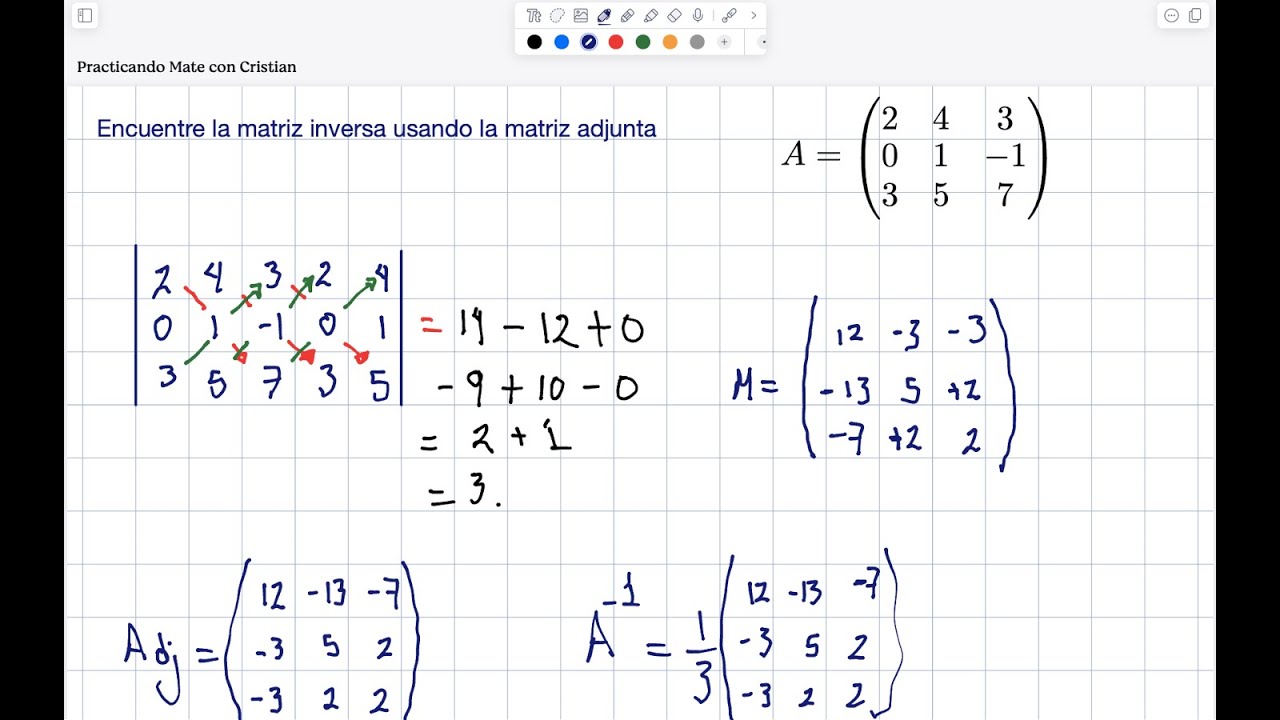 Tt
Practicando Mate con Cristian
Encuentre la matriz inversa usando la matriz adjunta
A =
2 4 3
0 1 −1
3 5 7
2 4 3 2 4
0 1 -1 0 1
3 5 7 3 5
= 14 - 12 + 0
- 9 + 10 - 0
= 2 + 1
= 3.
M =
12 -3 -3
-13 5 +2
-7 +2 2
Adj =
12 -13 -7
-3 5 2
-3 2 2
A⁻¹ = 1/3
12 -13 -7
-3 5 2
-3 2 2